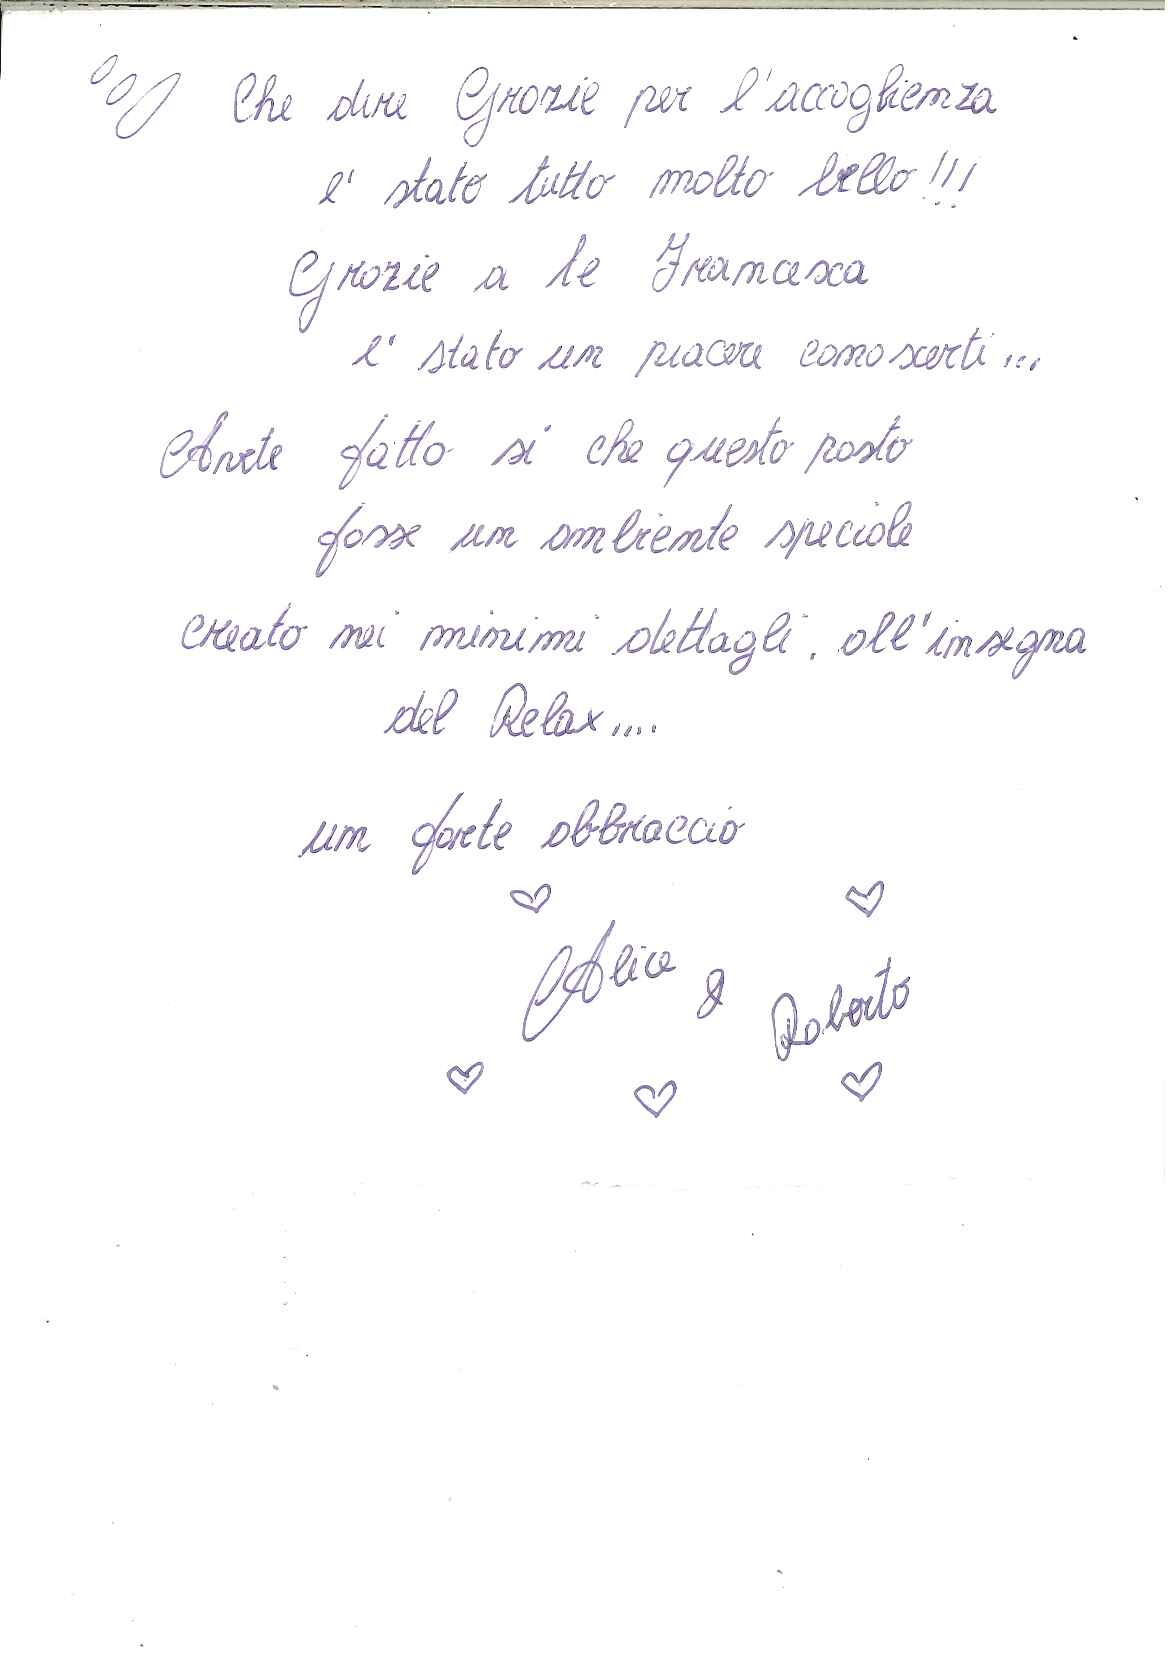 Che dire Grazie per l'accoglienza
e' stato tutto molto bello!!!
Grazie a te Francesca
e' stato un piacere conoscerti...
Avete fatto si che questo posto
fosse un ambiente speciale
creato nei minimi dettagli, all'insegna
del Relax....
un forte abbraccio
Alice & Roberto